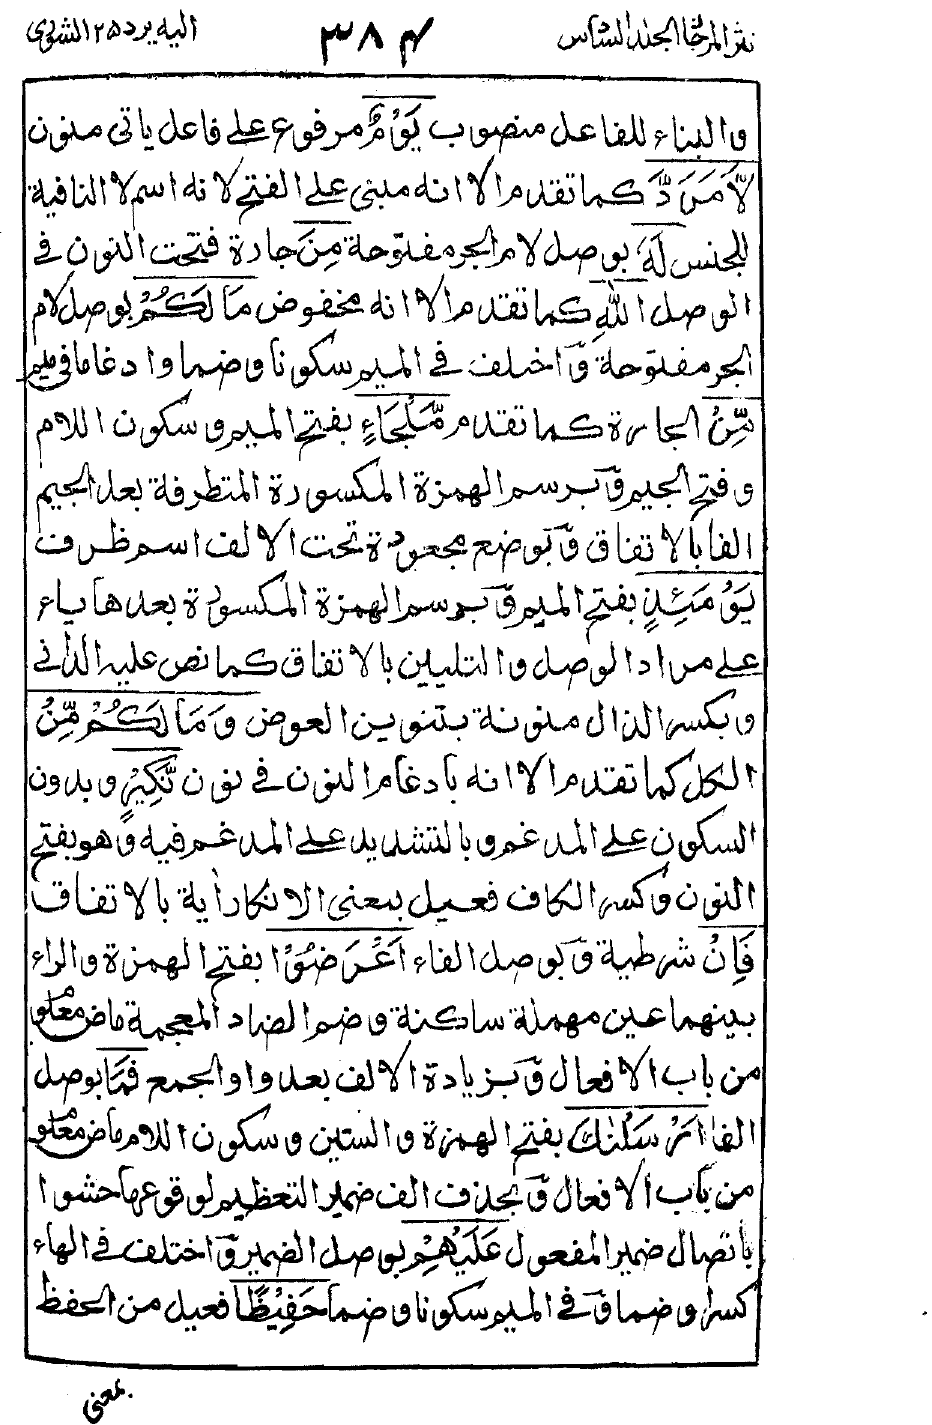 نثر المرجان الجلد السادس
٣٨٤
اليه يرد ٢٥ الشورى
والبناء للفاعل منصوب يَوْمٌ مرفوع على فاعل ياتى منون
لَّا مَرَدَّ كما تقدم الا انه مبنى على الفتح لانه اسم لا النافية
للجنس لَهٗ بوصل لام الجر مفتوحة مِنَ جارة فتحت النون فى
الوصل اللّٰهِ كما تقدم الا انه مخفوض مَا لَكُمْ بوصل لام
الجر مفتوحة وَاختلف فى الميم سكونا وضما وادغاما فى ميم
مِّنْ الجارة كما تقدم مَّلْجَاءٍ بفتح الميم وسكون اللام
وفتح الجيم وَبرسم الهمزة المكسورة المتطرفة بعد الجيم
الفا بالاتفاق وَبوضع مجعودة تحت الالف اسم ظرف
يَوْمَئِذٍ بفتح الميم وَبرسم الهمزة المكسورة بعدها ياء
على مراد الوصل والتليين بالاتفاق كما نص عليه الدانى
وبكسر الذال منونة بتنوين العوض وَمَا لَكُمْ مِّنْ
الكل كما تقدم الا انه بادغام النون فى نون نَّكِيْرٍ وبدون
السكون على المدغم وبالتشديد على المدغم فيه وَهو بفتح
النون وَكسر الكاف فعيل بمعنى الانكار اٰية بالاتفاق
فَاِنْ شرطية وَبوصل الفاء اَعْرَضُوْا بفتح الهمزة والراء
بينهما عين مهملة ساكنة وضم الضاد المعجمة ماض معلوم
من باب الافعال وَبزيادة الالف بعد واو الجمع فَمَا بوصل
الفا اَرْسَلْنٰكَ بفتح الهمزة والسين وسكون اللام ماض معلوم
من باب الافعال وَبحذف الف ضمير التعظيم لوقوعها حشوا
باتصال ضمير المفعول عَلَيْهِمْ بوصل الضمير وَاختلف فى الهاء
كسرا وضما وَفى الميم سكونا وضما حَفِيْظًا فعيل من الحفظ
بمعنى